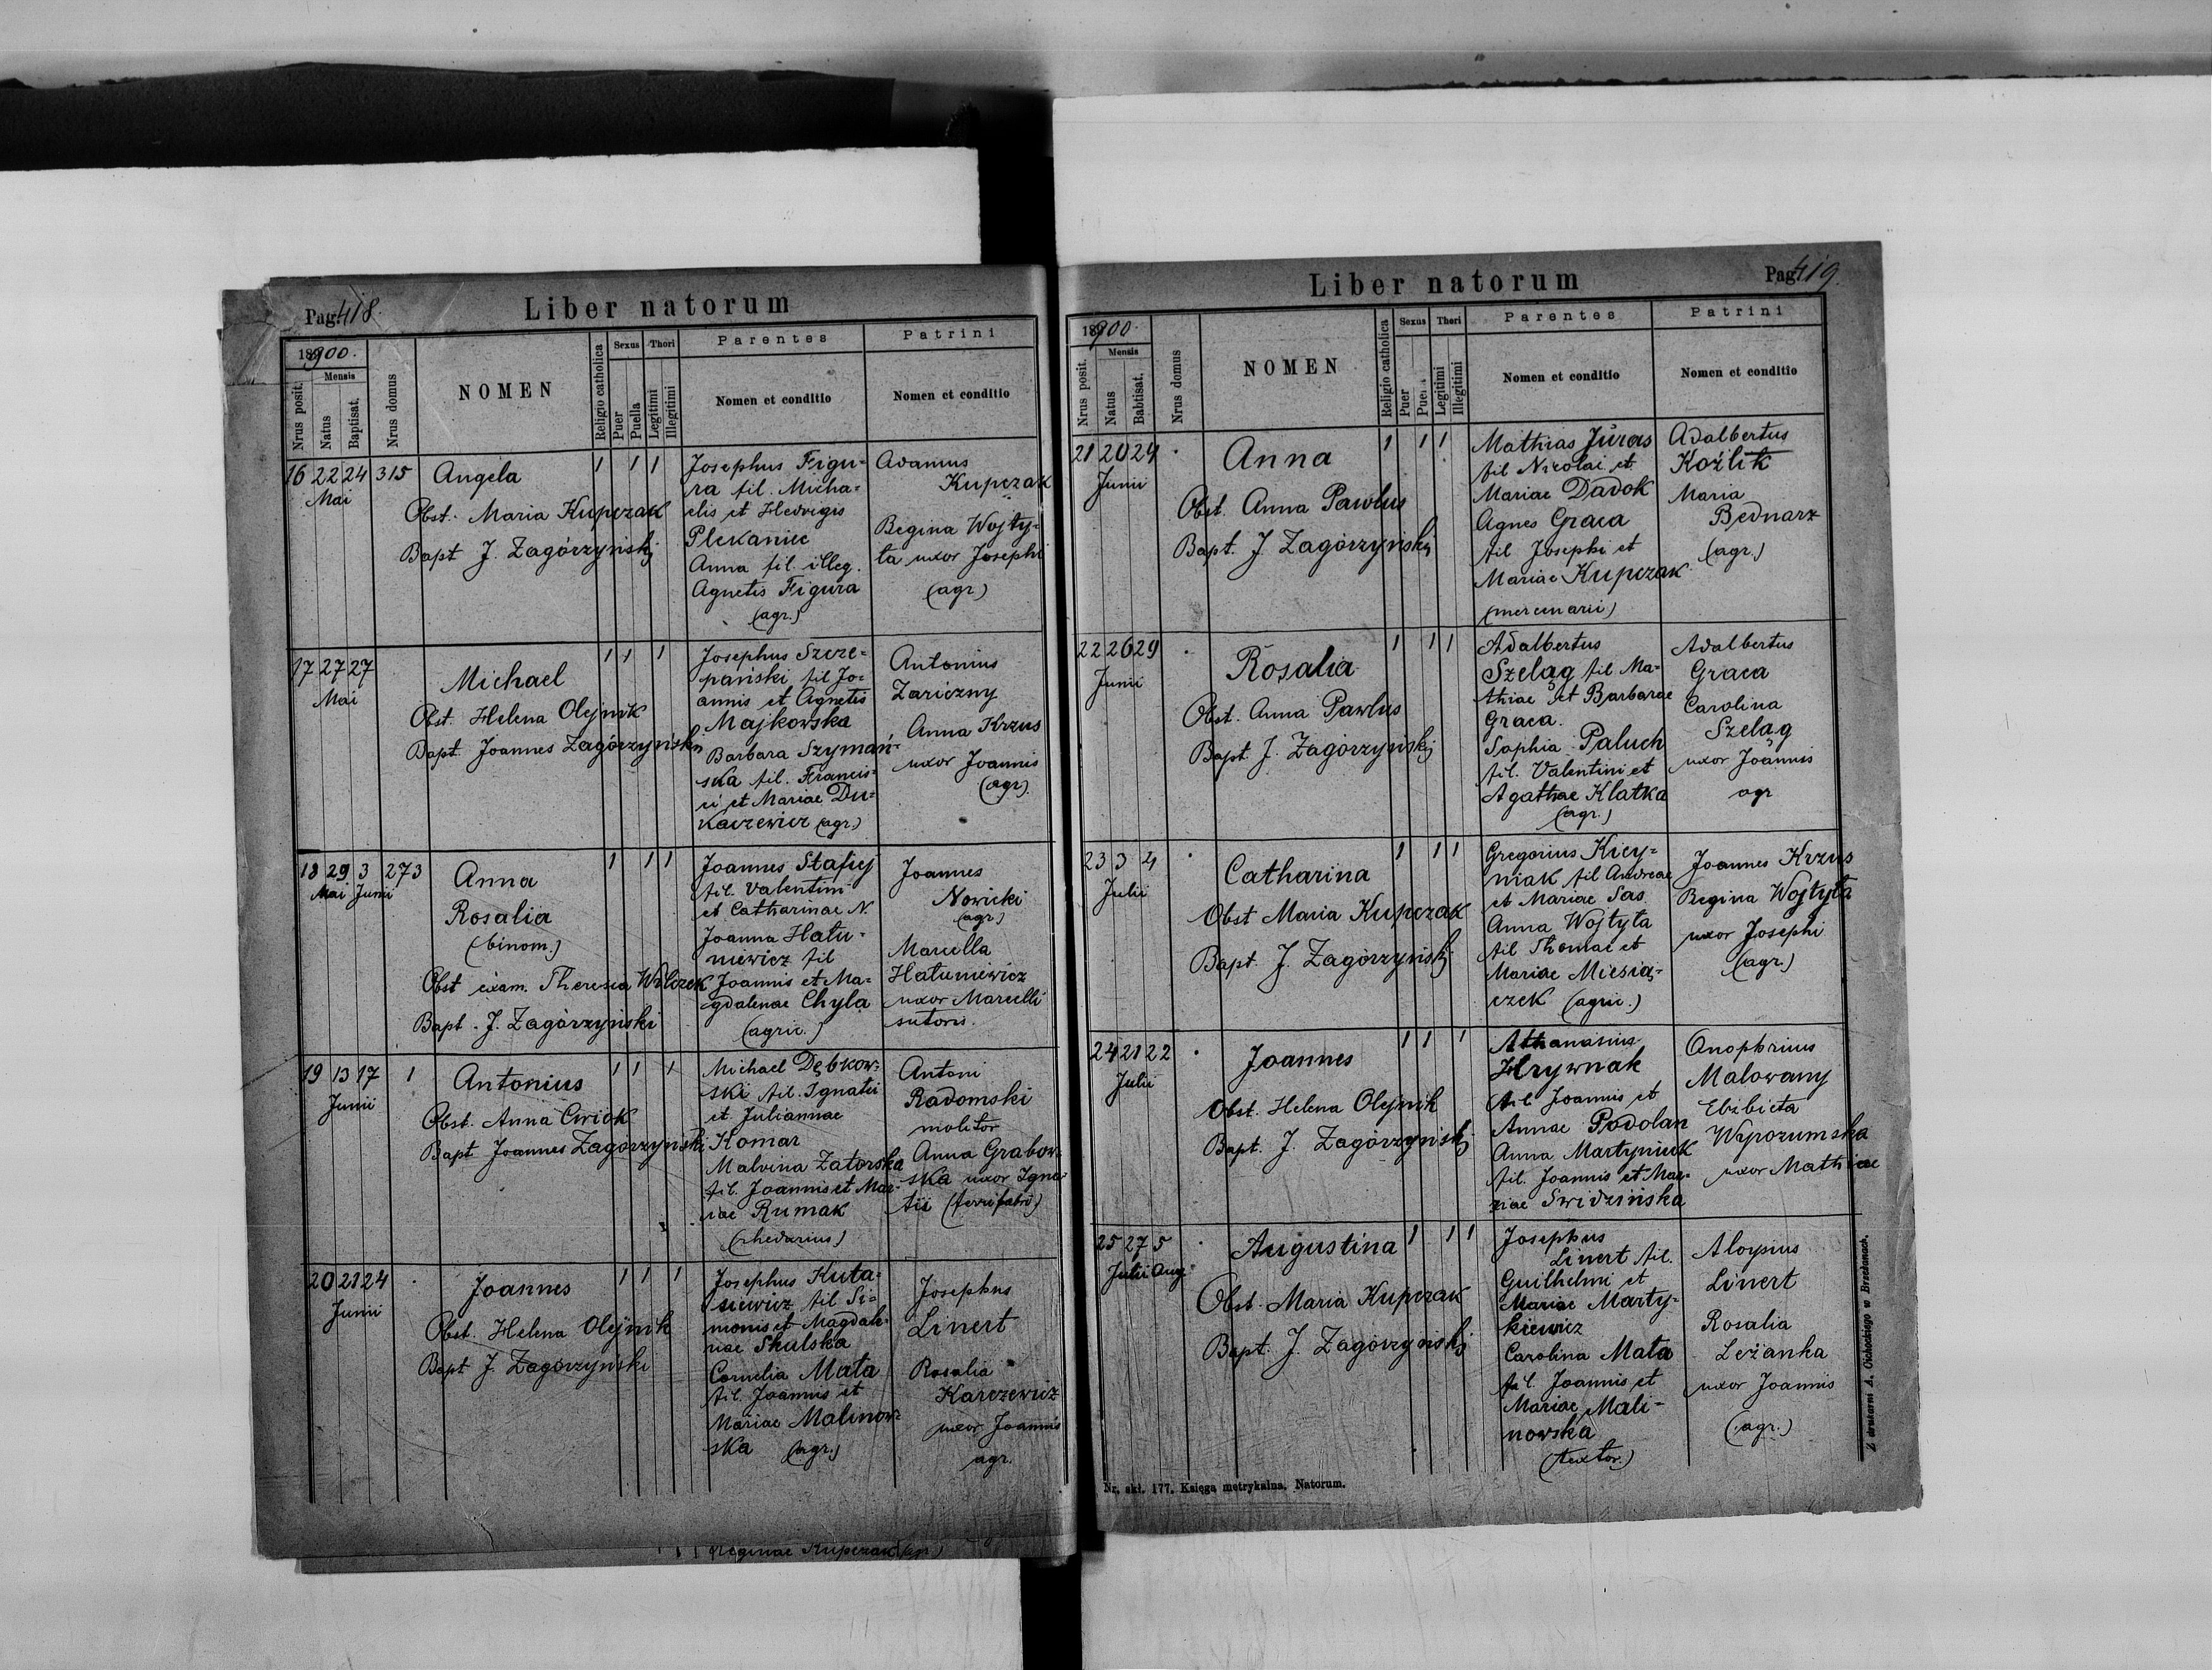 Pag. 418.
Liber natorum
1900.
Nrus posit.
Mensis
Natus
Baptisat.
Nrus domus
NOMEN
Religio catholica
Sexus
Puer
Puella
Thori
Legitimi
Illegitimi
Parentes
Nomen et conditio
Patrini
Nomen et conditio
16 22 24 315
Mai
Angela
Obst. Maria Kupczak
Bapt J. Zagórzyński
1 1 1
Josephus Figu-
ra fil. Micha-
elis et Hedvigis
Plekaniec
Anna fil. illeg.
Agnetis Figura
(agr.)
Adamus
Kupczak
Regina Wojty-
ła uxor Josephi
(agr)
17 27 27
Mai
Michael
Obst. Helena Olejnik
Bapt. Joannes Zagórzyński
1 1 1
Josephus Szcze-
pański fil Jo-
annis et Agnetis
Majkowska
Barbara Szymań-
ska fil. Francis-
ci et Mariae Du-
kaczewicz (agr.)
Antonius
Zariczny
Anna Krzus
uxor Joannis
(agr).
18 29 3 273
Mai Junii
Anna
Rosalia
(binom.)
Obst exam. Theresia Wilczek
Bapt. J. Zagórzyński
1 1 1
Joannes Stafiej
fil. Valentini
et Catharinae N.
Joanna Hatu-
niewicz fil
Joannis et Ma-
gdalenae Chyla
(agric.)
Joannes
Nowicki
(agr)
Marcella
Hatuniewicz
uxor Marcelli
sutoris.
19 13 17 1
Junii
Antonius
Obst. Anna Cwiok
Bapt Joannes Zagórzyński
1 1 1
Michael Dębkow-
ski fil. Ignatii
et Juliannae
Komar
Malvina Zatorska
fil. Joannis et Mar-
iae Rumak
(rhedarius)
Antoni
Radomski
molitor
Anna Grabow-
ska uxor Igna-
tii (ferrifabri)
20 21 24
Junii
Joannes
Obst. Helena Olejnik
Bapt J. Zagórzyński
1 1 1
Josephus Kuta-
siewicz fil Si-
monis et Magdale-
nae Skulska
Cornelia Mata
fil. Joannis et
Mariae Malinow-
ska (agr.)
Josephus
Linert
Rosalia
Karczewicz
uxor Joannis
agr.
Reginae Kupczak (agr)
Liber natorum
Pag. 419.
1900.
Nrus posit.
Mensis
Natus
Babtisat.
Nrus domus
NOMEN
Religio catholica
Sexus
Puer
Puella
Thori
Legitimi
Illegitimi
Parentes
Nomen et conditio
Patrini
Nomen et conditio
21 20 24
Junii
Anna
Obst. Anna Pawlus
Bapt. J Zagórzyński
1 1 1
Mathias Juras
fil Nicolai et
Mariae Dadok
Agnes Graca
fil Josephi et
Mariae Kupczak
(mercenarii)
Adalbertus
Koźlik
Maria
Bednarz
(agr.)
22 26 29
Junii
Rosalia
Obst. Anna Pawlus
Bapt J. Zagórzyński
1 1 1
Adalbertus
Szeląg fil Ma-
thiae et Barbarae
Graca.
Sophia Paluch
fil. Valentini et
Agathae Klatka
(agr.)
Adalbertus
Graca
Carolina
Szeląg
uxor Joannis
agr
23 3 4
Julii
Catharina
Obst Maria Kupczak
Bapt. J. Zagórzyński
1 1 1
Gregorius Kicy-
niak fil Andreae
et Mariae Sas
Anna Wojtyła
fil Thomae et
Mariae Miesią-
czek (agric.)
Joannes Krzus
Regina Wojtyła
uxor Josephi
(agr.)
24 21 22
Julii
Joannes
Obst. Helena Olejnik
Bapt. J. Zagórzyński
1 1 1
Athanasius
Hrywnak
fil Joannis et
Annae Podolan
Anna Martyniuk
fil. Joannis et Mar-
riae Swidzińska
Onophrius
Malowany
Elżbieta
uxor Mathiae
25 27 5
Julii Aug.
Augustina
Obst. Maria Kupczak
Bapt. J. Zagórzyński
1 1 1
Josephus
Linert fil.
Guilhelmi et
Mariae Marty-
kiewicz
Carolina Mata
fil. Joannis et
Mariae Mali-
nowska
(textor.)
Aloysius
Linert
Rosalia
Leżanka
uxor Joannis
(agr.)
Nr. skł. 177. Księga metrykalna. Natorum.
Z drukarni A. Cichockiego w Brzeżanach.